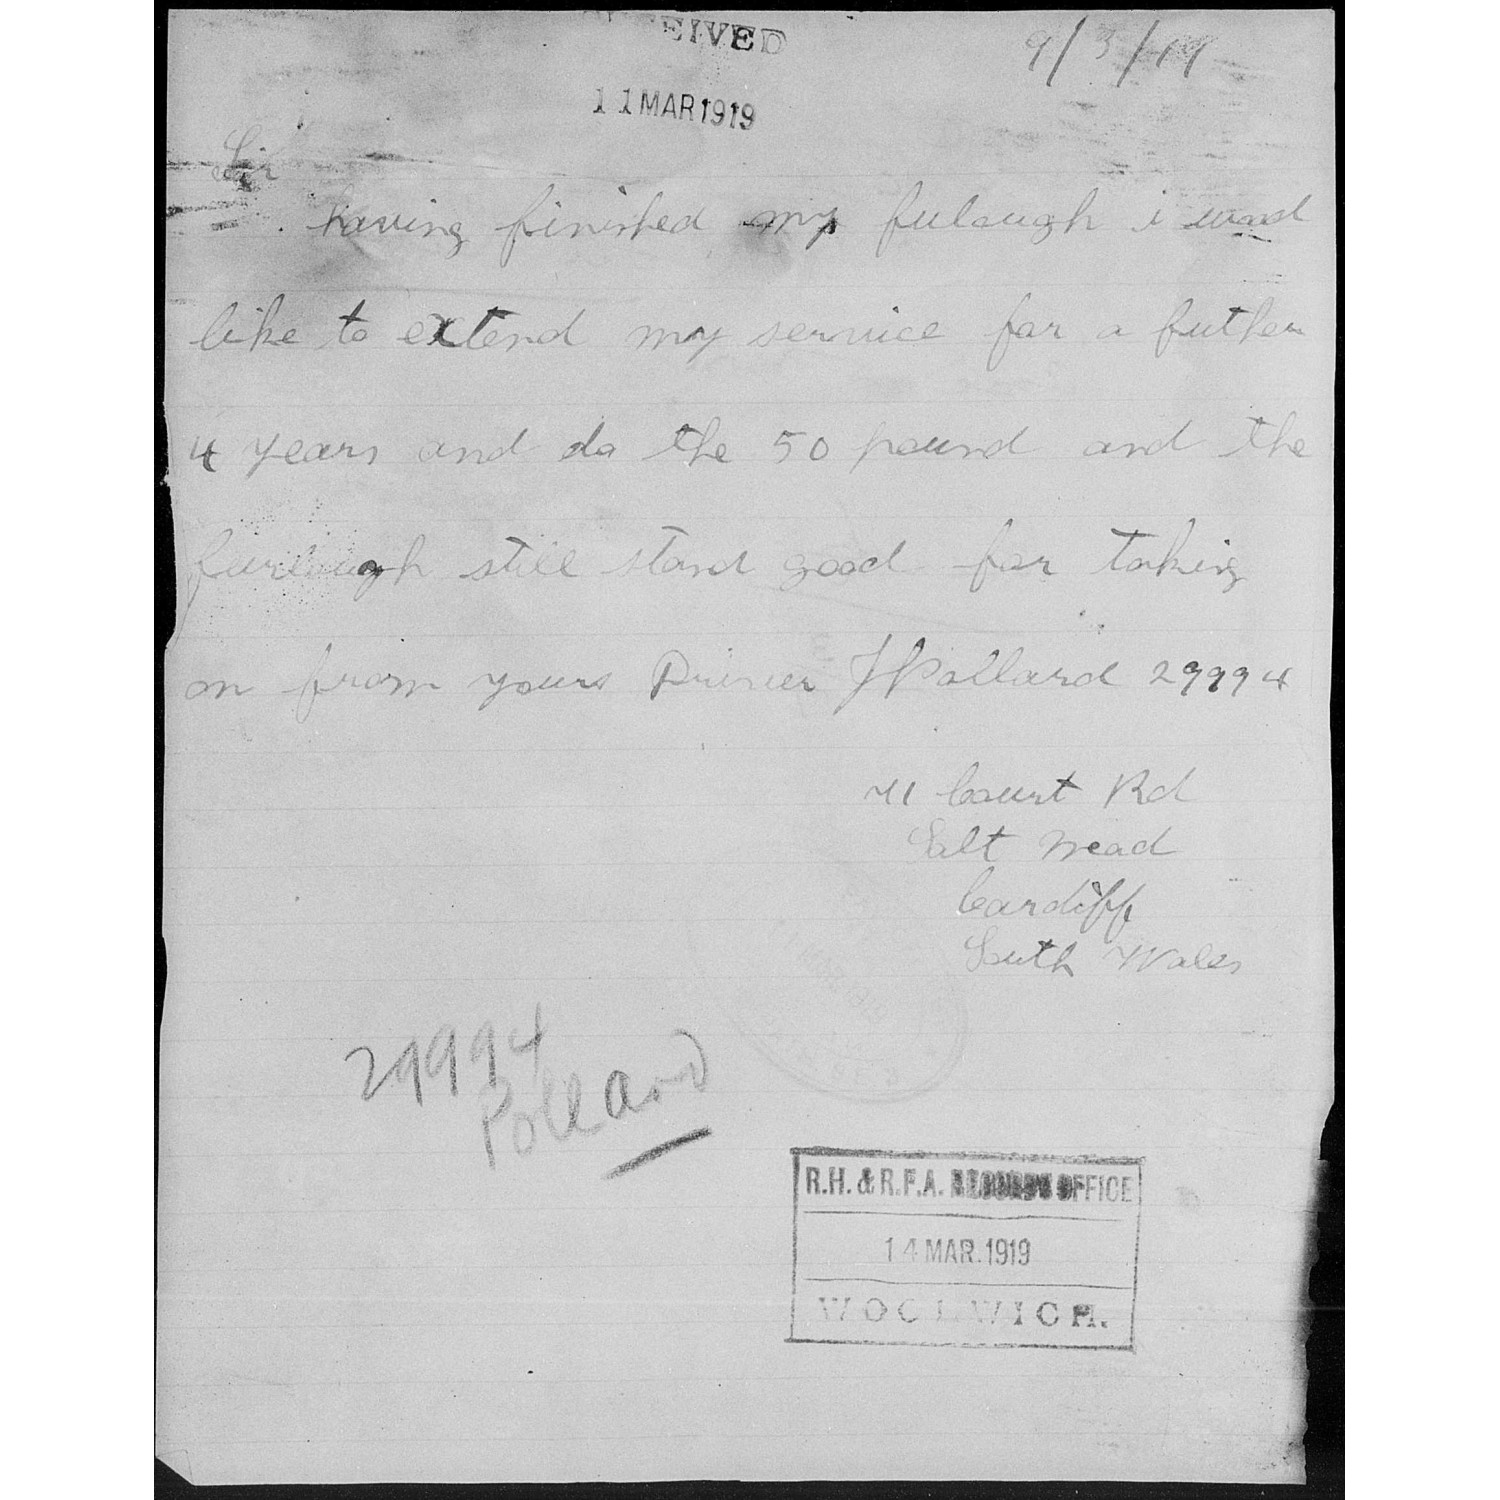 EIVED
9/3/19
11 MAR 1919
Sir
having finished my fulough i woud
like to extend my service for a futher
4 years and do the 50 pound and the
furlough still stand good for taking
on from yours Driver J Pollard 29994
71 Court Rd
Salt Mead
Cardiff
South Wales
29994
Pollard
R.H. & R.F.A. RECORDS OFFICE
14 MAR. 1919
WOOLWICH.